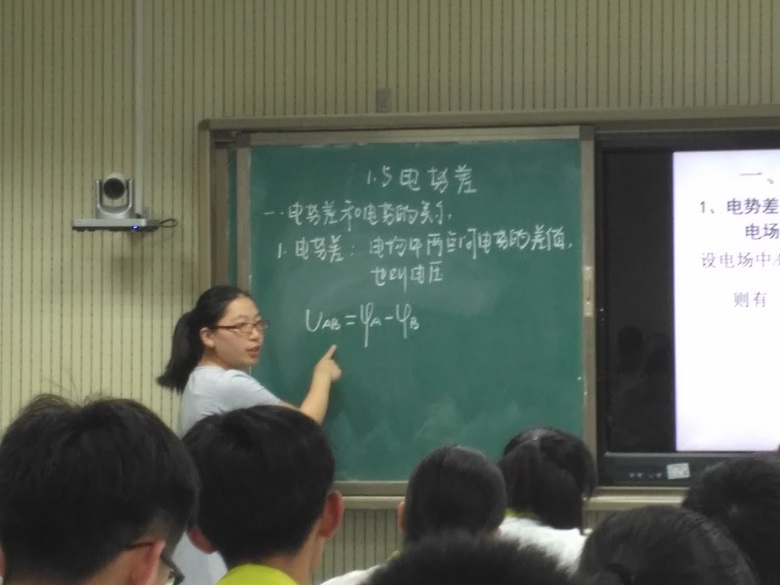 1.5 电势差
一.电势差和电势的关系.
1.电势差：电场中两点间电势的差值，
也叫电压
UAB=φA-φB
一、
1、电势差
电场
设电场中
则有